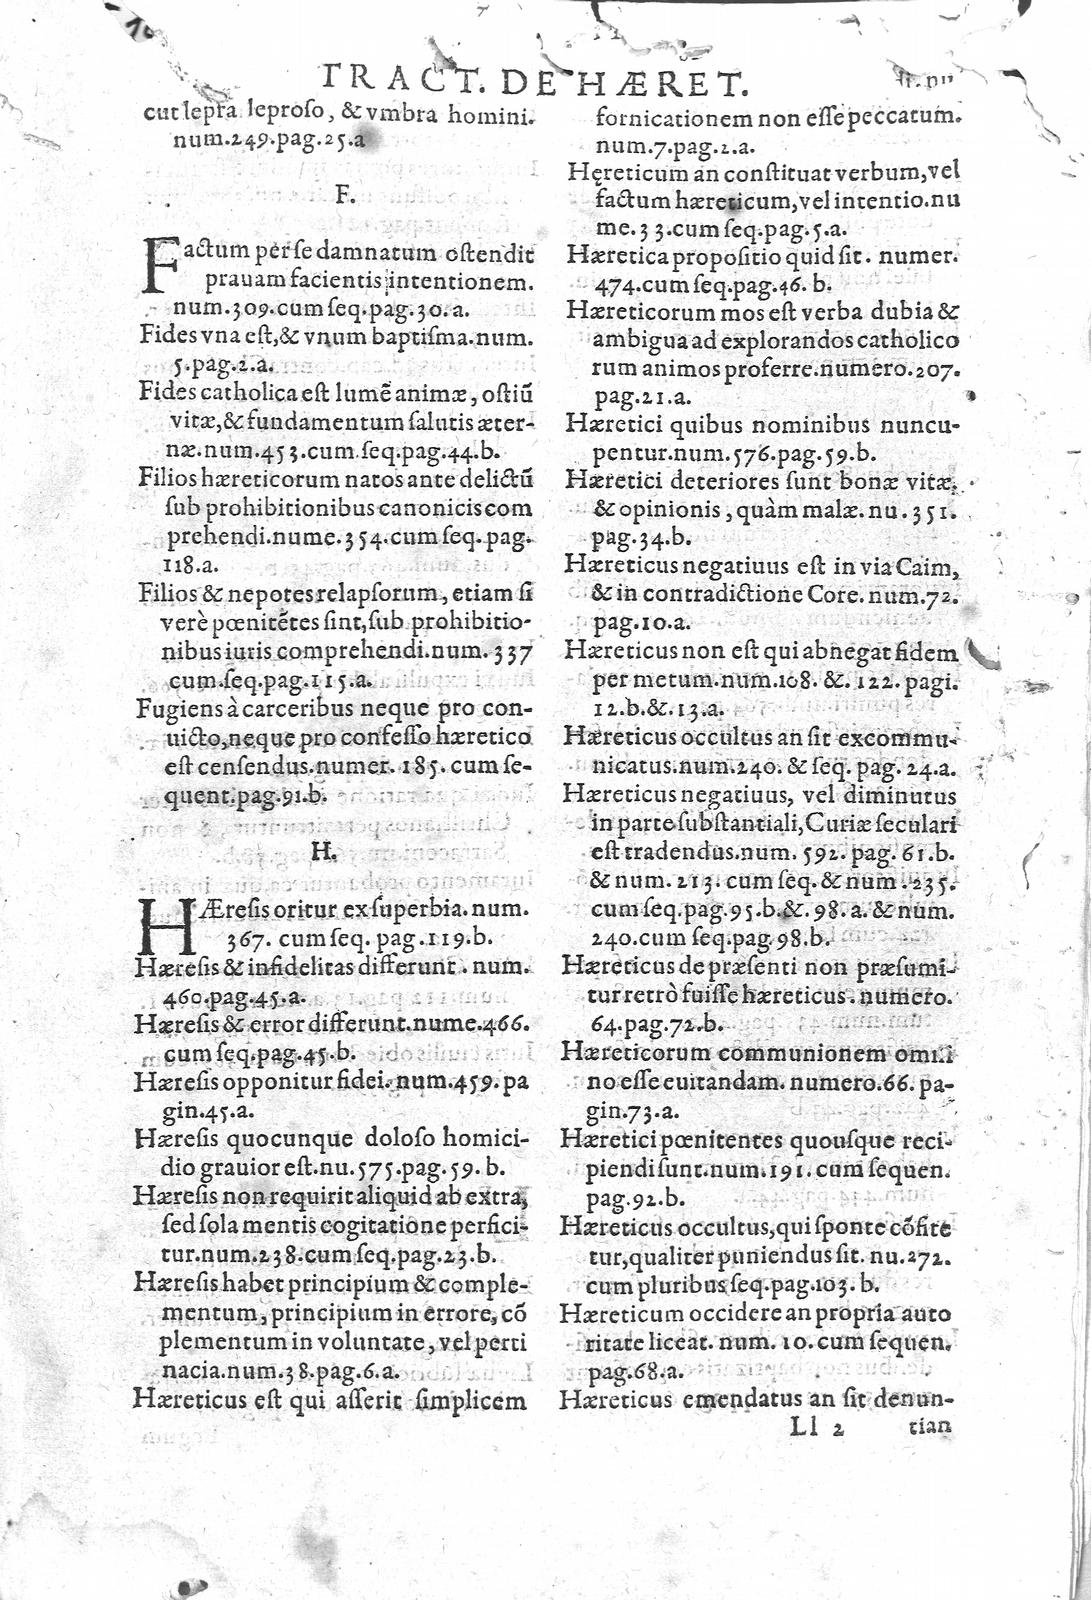 TRACT. DE HÆRET.
cut lepra leproso, & vmbra homini.
num.249.pag.25.a
F.
Factum per se damnatum ostendit
prauam facientis intentionem.
num.309.cum seq.pag.30.a.
Fides vna est,& vnum baptisma.num.
5.pag.2.a.
Fides catholica est lumẽ animæ, ostiũ
vitæ,& fundamentum salutis æter-
næ.num.453.cum seq.pag.44.b.
Filios hæreticorum natos ante delictũ
sub prohibitionibus canonicis com
prehendi.nume.354.cum seq.pag.
118.a.
Filios & nepotes relapsorum, etiam si
verè pœnitẽtes sint,sub prohibitio-
nibus iuris comprehendi.num.337
cum.seq.pag.115.a.
Fugiens à carceribus neque pro con-
uicto,neque pro confesso hæretico
est censendus.numer.185.cum se-
quent.pag.91.b.
H.
HÆresis oritur ex superbia.num.
367. cum seq. pag.119.b.
Hæresis & infidelitas differunt.num.
460.pag.45.a.
Hæresis & error differunt.nume.466.
cum seq.pag.45.b.
Hæresis opponitur fidei.num.459.pa
gin.45.a.
Hæresis quocunque doloso homici-
dio grauior est.nu.575.pag.59.b.
Hæresis non requirit aliquid ab extra,
sed sola mentis cogitatione perfici-
tur.num.238.cum seq.pag.23.b.
Hæresis habet principium & comple-
mentum, principium in errore, cõ
plementum in voluntate, vel perti
nacia.num.38.pag.6.a.
Hæreticus est qui asserit simplicem
fornicationem non esse peccatum.
num.7.pag.2.a.
Hęreticum an constituat verbum,vel
factum hæreticum,vel intentio.nu
me.33.cum seq.pag.5.a.
Hæretica propositio quid sit. numer.
474.cum seq.pag.46.b.
Hæreticorum mos est verba dubia &
ambigua ad explorandos catholico
rum animos proferre.numero.207.
pag.21.a.
Hæretici quibus nominibus nuncu-
pentur.num.576.pag.59.b.
Hæretici deteriores sunt bonæ vitæ,
& opinionis, quàm malæ.nu.351.
pag.34.b.
Hæreticus negatiuus est in via Caim,
& in contradictione Core.num.72.
pag.10.a.
Hæreticus non est qui abnegat fidem
per metum.num.108. &. 122. pagi.
12.b.&.13.a.
Hæreticus occultus an sit excommu-
nicatus.num.240. & seq. pag. 24.a.
Hæreticus negatiuus, vel diminutus
in parte substantiali,Curiæ seculari
est tradendus.num. 592. pag. 61.b.
& num. 213. cum seq. & num.235.
cum seq.pag.95.b.&. 98. a. & num.
240.cum seq.pag.98.b.
Hæreticus de præsenti non præsumi-
tur retrò fuisse hæreticus. numero.
64.pag.72.b.
Hæreticorum communionem omni
no esse euitandam. numero.66. pa-
gin.73.a.
Hæretici pœnitentes quousque reci-
piendi sunt.num.191. cum sequen.
pag.92.b.
Hæreticus occultus,qui sponte cõfite
tur,qualiter puniendus sit. nu.272.
cum pluribus seq.pag.103.b.
Hæreticum occidere an propria auto
ritate liceat. num. 10. cum sequen.
pag.68.a.
Hæreticus emendatus an sit denun-
Ll 2 tian